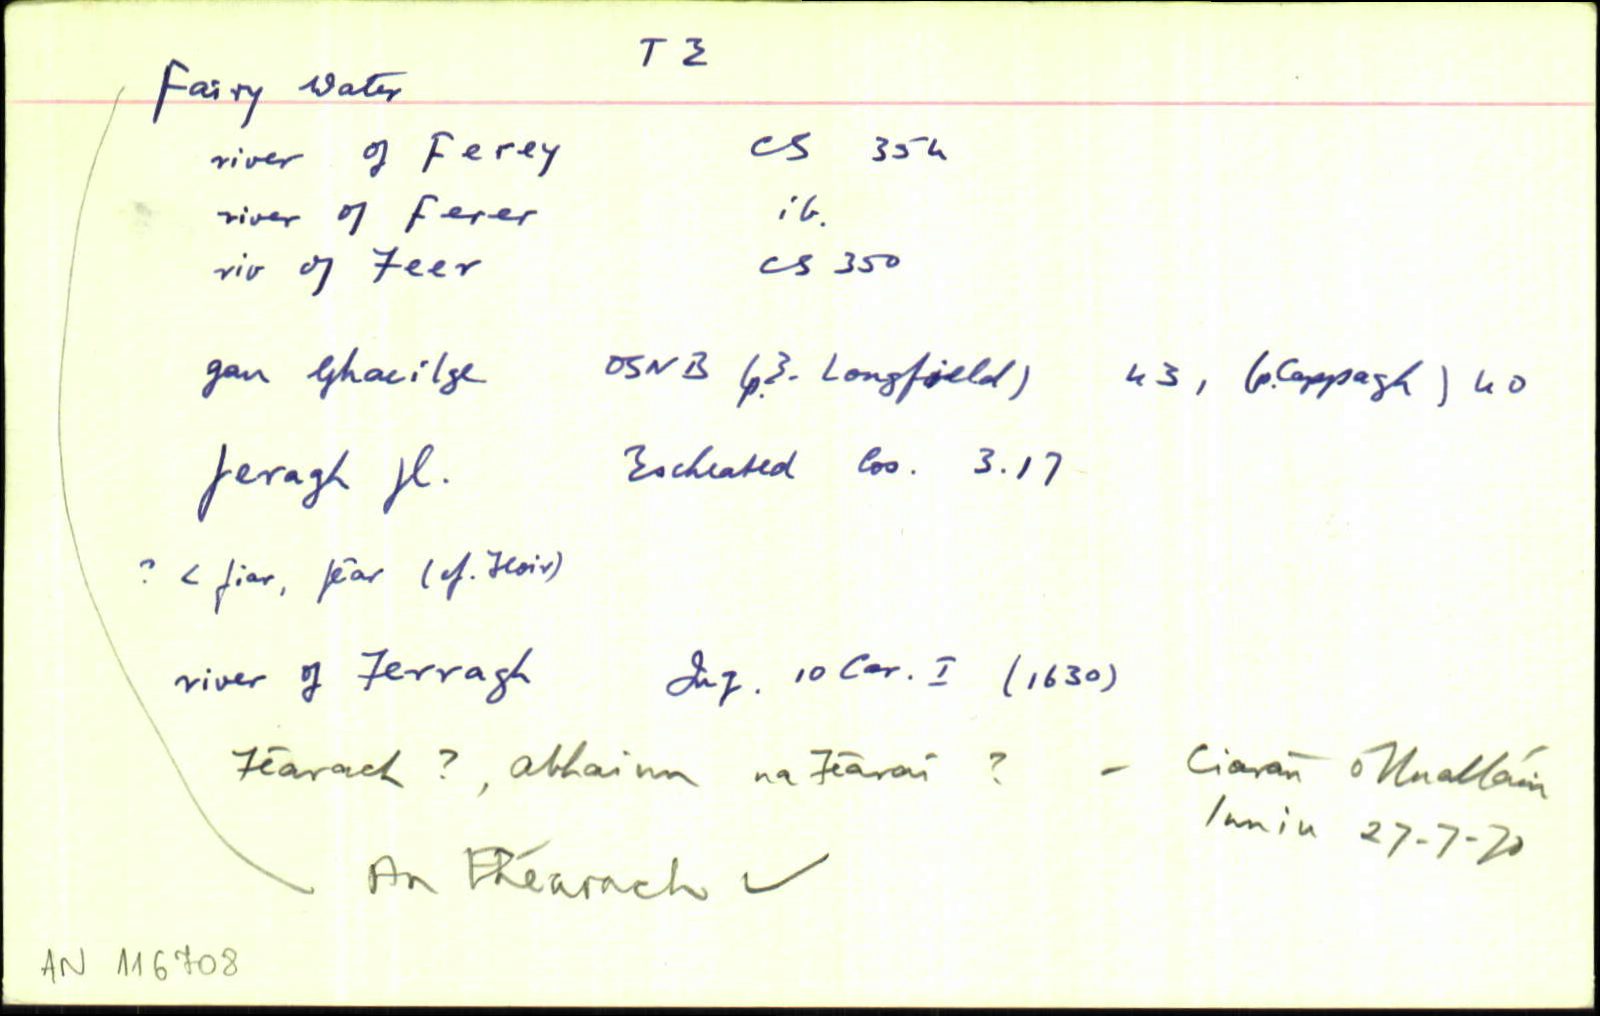 T E
Fairy Water
river of Ferey CS 354
river of Ferer ib.
riv of Feer CS 350
gan Ghaeilge OSNB (p. E. Longfield) 43, (p. Cappagh) 40
feragh fl. Escheated Cos. 3.17
? < fiar, féar (cf. Moir)
river of Ferragh Inq. 10 Car. I (1630)
Féarach ?, abhainn na Féaraí ? - Ciarán Ó Nualláin
Inniu 27-7-70
An Fhéarach ✓
AN 116708